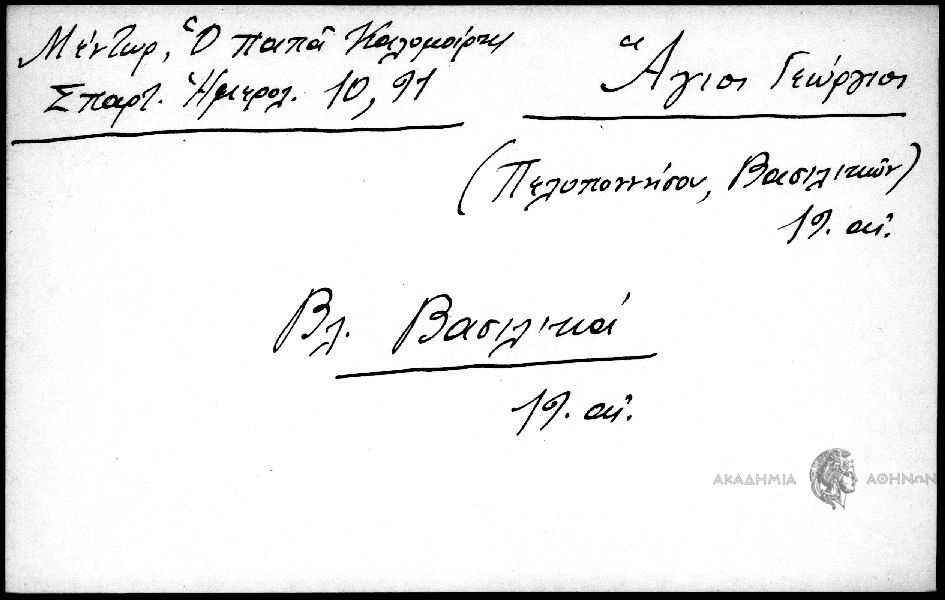 Μέντωρ, Ὁ παπᾶ Καλομοίρης
Σπαρτ. Ἡμερολ. 10, 91
Ἅγιος Γεώργιος
(Πελοποννήσου, Βασιλικῶν)
19. αἰ.
Βλ. Βασιλικά
19. αἰ.
ΑΚΑΔΗΜΙΑ ΑΘΗΝΩΝ